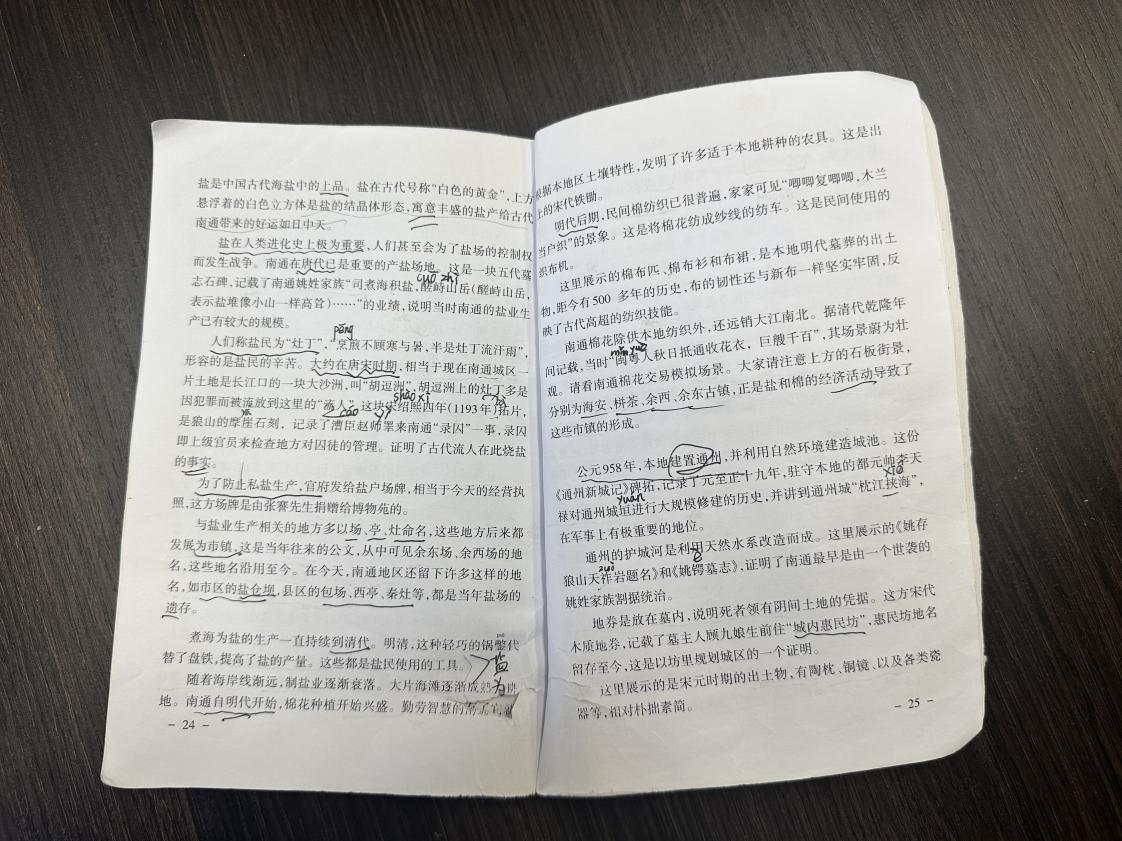 盐是中国古代海盐中的上品。盐在古代号称“白色的黄金”,上方
悬浮着的白色立方体是盐的结晶体形态,寓意丰盛的盐产给古代
南通带来的好运如日中天。
盐在人类进化史上极为重要,人们甚至会为了盐场的控制权
而发生战争。南通在唐代已是重要的产盐场地。这是一块五代墓
cuó zhì
志石碑,记载了南通姚姓家族“司煮海积盐,醝峙山岳(醝峙山岳,
表示盐堆像小山一样高耸)……”的业绩,说明当时南通的盐业生
产已有较大的规模。
pēng
人们称盐民为“灶丁”,“烹煎不顾寒与暑,半是灶丁流汗雨”,
形容的是盐民的辛苦。大约在唐宋时期,相当于现在南通城区一
片土地是长江口的一块大沙洲,叫“胡逗洲”,胡逗洲上的灶丁多是
shào xī
因犯罪而被流放到这里的“流人”,这块宋绍熙四年(1193年)拓片,
yá cáo yì
是狼山的摩崖石刻,记录了漕臣赵师睪来南通“录囚”一事,录囚
即上级官员来检查地方对囚徒的管理。证明了古代流人在此烧盐
的事实。
为了防止私盐生产,官府发给盐户场牌,相当于今天的经营执
照,这方场牌是由张謇先生捐赠给博物苑的。
与盐业生产相关的地方多以场、亭、灶命名,这些地方后来都
发展为市镇,这是当年往来的公文,从中可见余东场、余西场的地
名,这些地名沿用至今。在今天,南通地区还留下许多这样的地
名,如市区的盐仓坝,县区的包场、西亭、秦灶等,都是当年盐场的
遗存。
煮海为盐的生产一直持续到清代。明清,这种轻巧的锅𨱏代
替了盘铁,提高了盐的产量。这些都是盐民使用的工具。
盐
为
随着海岸线渐远,制盐业逐渐衰落。大片海滩逐渐成熟
地。南通自明代开始,棉花种植开始兴盛。勤劳智慧的
- 24 -
根据本地区土壤特性,发明了许多适于本地耕种的农具。这是出
土的宋代铁锄。
明代后期,民间棉纺织已很普遍,家家可见“唧唧复唧唧,木兰
当户织”的景象。这是将棉花纺成纱线的纺车。这是民间使用的
织布机。
这里展示的棉布匹、棉布衫和布裙,是本地明代墓葬的出土
物,距今有500 多年的历史,布的韧性还与新布一样坚实牢固,反
映了古代高超的纺织技能。
南通棉花除供本地纺织外,还远销大江南北。据清代乾隆年
mǐn yuè
间记载,当时“闽粤人秋日抵通收花衣,巨艘千百”,其场景蔚为壮
观。请看南通棉花交易模拟场景。大家请注意上方的石板街景,
分别为海安、栟茶、余西、余东古镇,正是盐和棉的经济活动导致了
这些市镇的形成。
公元958年,本地建置通州,并利用自然环境建造城池。这份
《通州新城记》碑拓,记录了元至正十九年,驻守本地的都元帅李天
yuán xié
禄对通州城垣进行大规模修建的历史,并讲到通州城“枕江挟海”,
在军事上有极重要的地位。
通州的护城河是利用天然水系改造而成。这里展示的《姚存
zuò è
狼山天祚岩题名》和《姚锷墓志》,证明了南通最早是由一个世袭的
姚姓家族割据统治。
地券是放在墓内,说明死者领有阴间土地的凭据。这方宋代
木质地券,记载了墓主人顾九娘生前住“城内惠民坊”,惠民坊地名
留存至今,这是以坊里规划城区的一个证明。
这里展示的是宋元时期的出土物,有陶枕、铜镜,以及各类瓷
器等,相对朴拙素简。
- 25 -